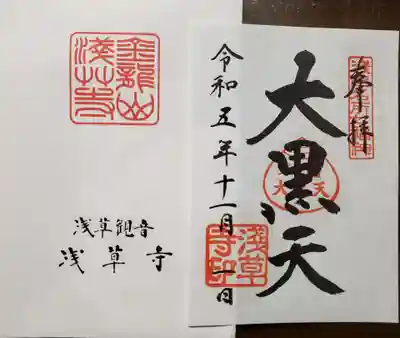 金龍山
淺草寺
浅草観音
浅草寺
奉拝
大黒天
令和五年十一月一日
浅草
寺印